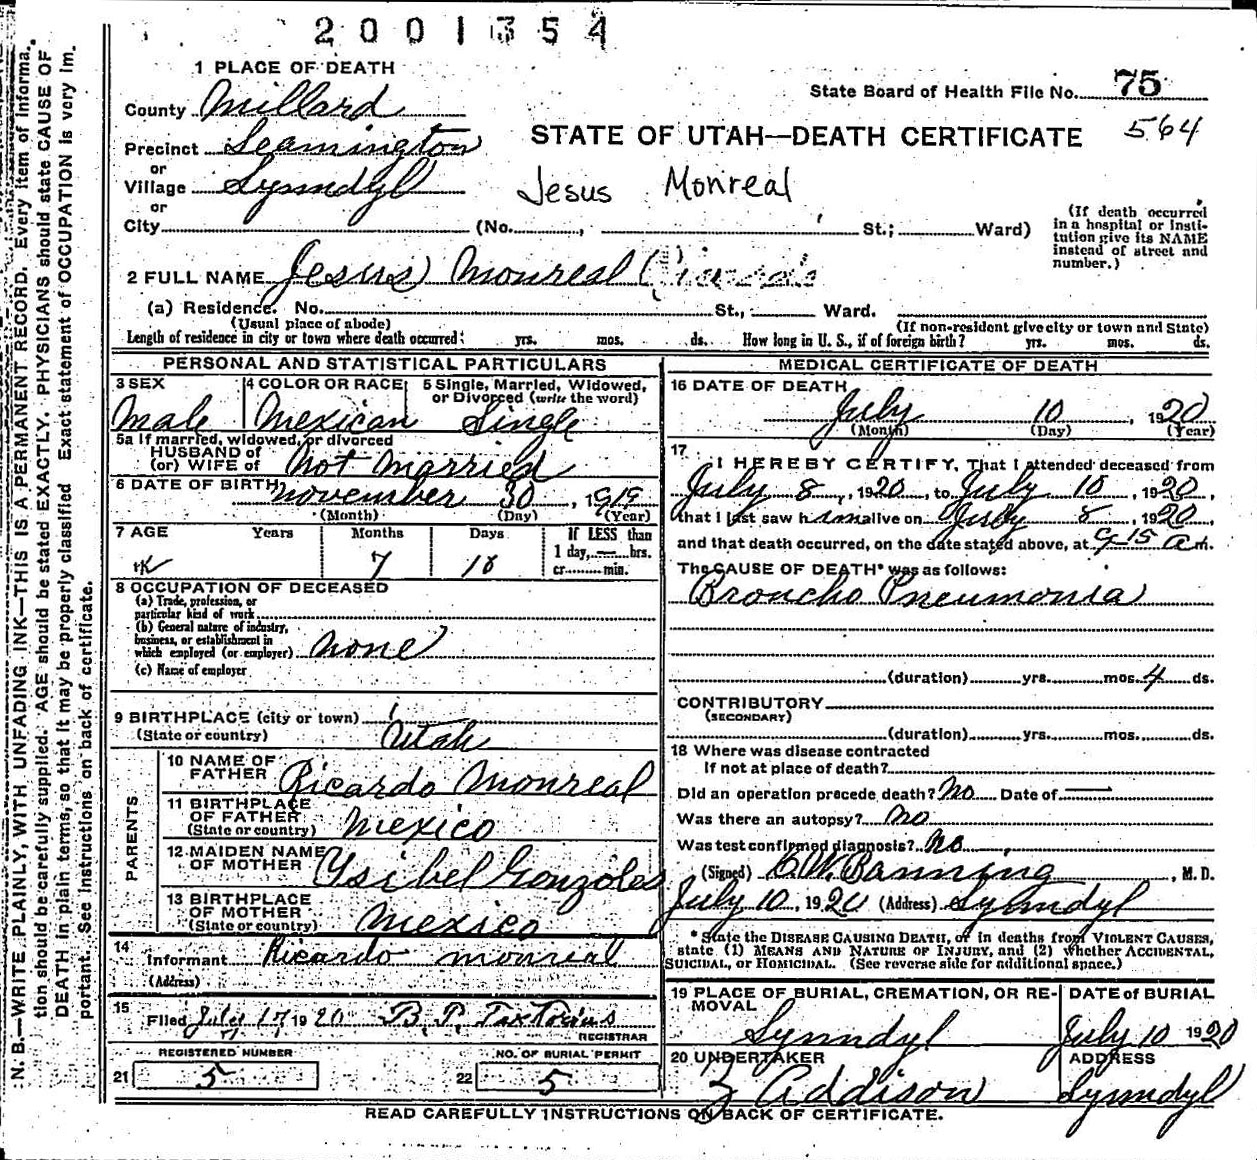 2001354
1 PLACE OF DEATH
State Board of Health File No. 75
County Millard
STATE OF UTAH—DEATH CERTIFICATE 564
Precinct Leamington
or
Village Lynndyl
Jesus Monreal
or
City (No. , St.; Ward)
(If death occurred in a hospital or institution give its NAME instead of street and number.)
2 FULL NAME Jesus Monreal
(a) Residence. No. St., Ward.
(Usual place of abode) (If non-resident give city or town and State)
Length of residence in city or town where death occurred: yrs. mos. ds. How long in U. S., if of foreign birth? yrs. mos. ds.
PERSONAL AND STATISTICAL PARTICULARS
3 SEX 4 COLOR OR RACE 5 Single, Married, Widowed, or Divorced (write the word)
Male Mexican Single
5a If married, widowed, or divorced
HUSBAND of
(or) WIFE of Not Married
6 DATE OF BIRTH November 30, 1919
(Month) (Day) (Year)
7 AGE Years Months Days If LESS than 1 day, — hrs. or min.
7 18
8 OCCUPATION OF DECEASED
(a) Trade, profession, or particular kind of work
(b) General nature of industry, business, or establishment in which employed (or employer) none
(c) Name of employer
9 BIRTHPLACE (city or town)
(State or country) Utah
PARENTS
10 NAME OF FATHER Ricardo Monreal
11 BIRTHPLACE OF FATHER (State or country) Mexico
12 MAIDEN NAME OF MOTHER Ysibel Gonzoles
13 BIRTHPLACE OF MOTHER (State or country) Mexico
14 Informant Ricardo Monreal
(Address)
15 Filed July 17 1920 B. P.
REGISTRAR
REGISTERED NUMBER NO. OF BURIAL PERMIT
21 5 22 5
MEDICAL CERTIFICATE OF DEATH
16 DATE OF DEATH
July 10, 1920
(Month) (Day) (Year)
17 I HEREBY CERTIFY, That I attended deceased from
July 8, 1920, to July 10, 1920,
that I last saw him alive on July 8, 1920
and that death occurred, on the date stated above, at 9-15 a.m.
The CAUSE OF DEATH* was as follows:
Broncho Pneumonia
(duration) yrs. mos. 4 ds.
CONTRIBUTORY
(SECONDARY)
(duration) yrs. mos. ds.
18 Where was disease contracted
If not at place of death?
Did an operation precede death? No Date of —
Was there an autopsy? No
Was test confirmed diagnosis? No
(Signed) C. W. Banning, M. D.
July 10, 1920 (Address) Lynndyl
* State the DISEASE CAUSING DEATH, or in deaths from VIOLENT CAUSES,
state (1) MEANS AND NATURE OF INJURY, and (2) whether ACCIDENTAL,
SUICIDAL, or HOMICIDAL. (See reverse side for additional space.)
19 PLACE OF BURIAL, CREMATION, OR REMOVAL DATE of BURIAL
Lynndyl July 10 1920
20 UNDERTAKER ADDRESS
Addison Lynndyl
READ CAREFULLY INSTRUCTIONS ON BACK OF CERTIFICATE.
N. B.—WRITE PLAINLY, WITH UNFADING INK—THIS IS A PERMANENT RECORD. Every item of informa-
tion should be carefully supplied. AGE should be stated EXACTLY. PHYSICIANS should state CAUSE OF
DEATH in plain terms, so that it may be properly classified. Exact statement of OCCUPATION is very im-
portant. See instructions on back of certificate.